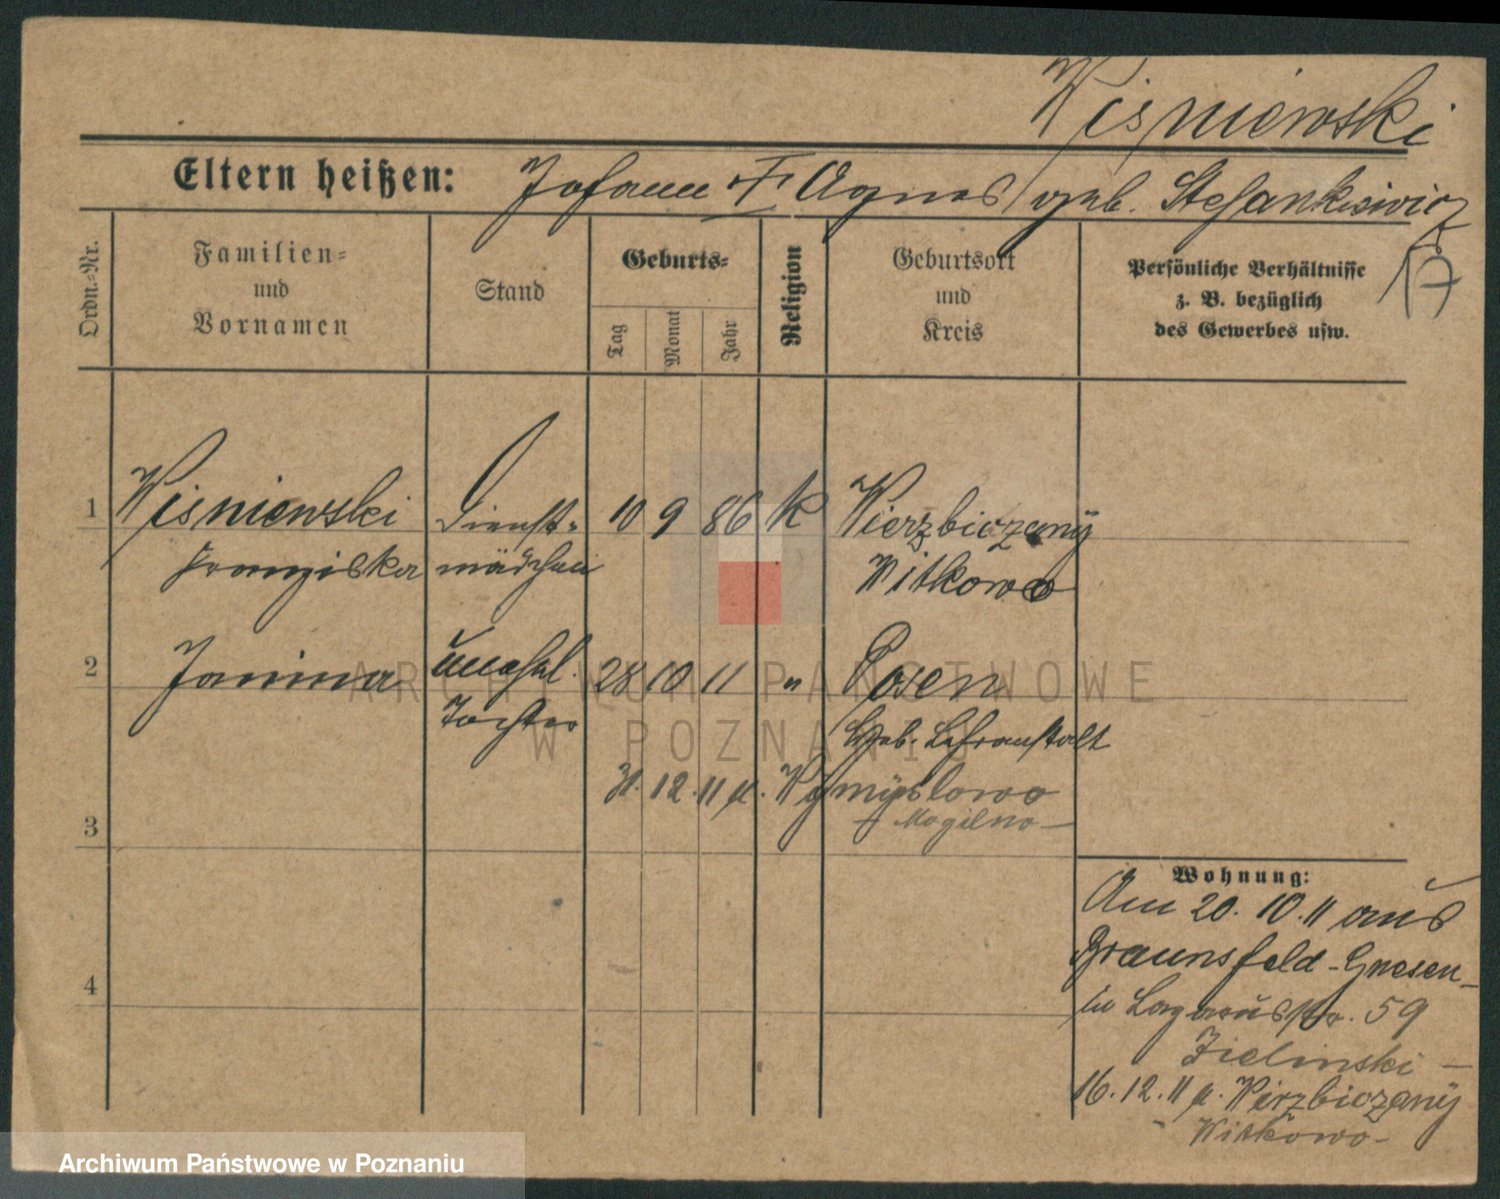 Wisniewski
Eltern heißen: Johann + Agnes geb. Stefankiewicz
17
Ordn.-Nr.
Familien- und Vornamen
Stand
Geburts-
Tag
Monat
Jahr
Religion
Geburtsort und Kreis
Persönliche Verhältnisse
z. B. bezüglich
des Gewerbes usw.
1 Wisniewski Dienst- 10 9 86 K Wierzbiczany
Franziska mädchen Witkowo
2 Janina unehl. 28 10 11 " Posen
Tochter Lehranstalt
12. 11 Wymyslowo
3 Mogilno
4
Wohnung:
Am 20. 10. 11 aus
Braunsfeld-Gnesen
Lazarusstr. 59
Zielinski
16. 12. 11 Wierzbiczany
Witkowo
ARCHIWUM PAŃSTWOWE
W POZNANIU
Archiwum Państwowe w Poznaniu